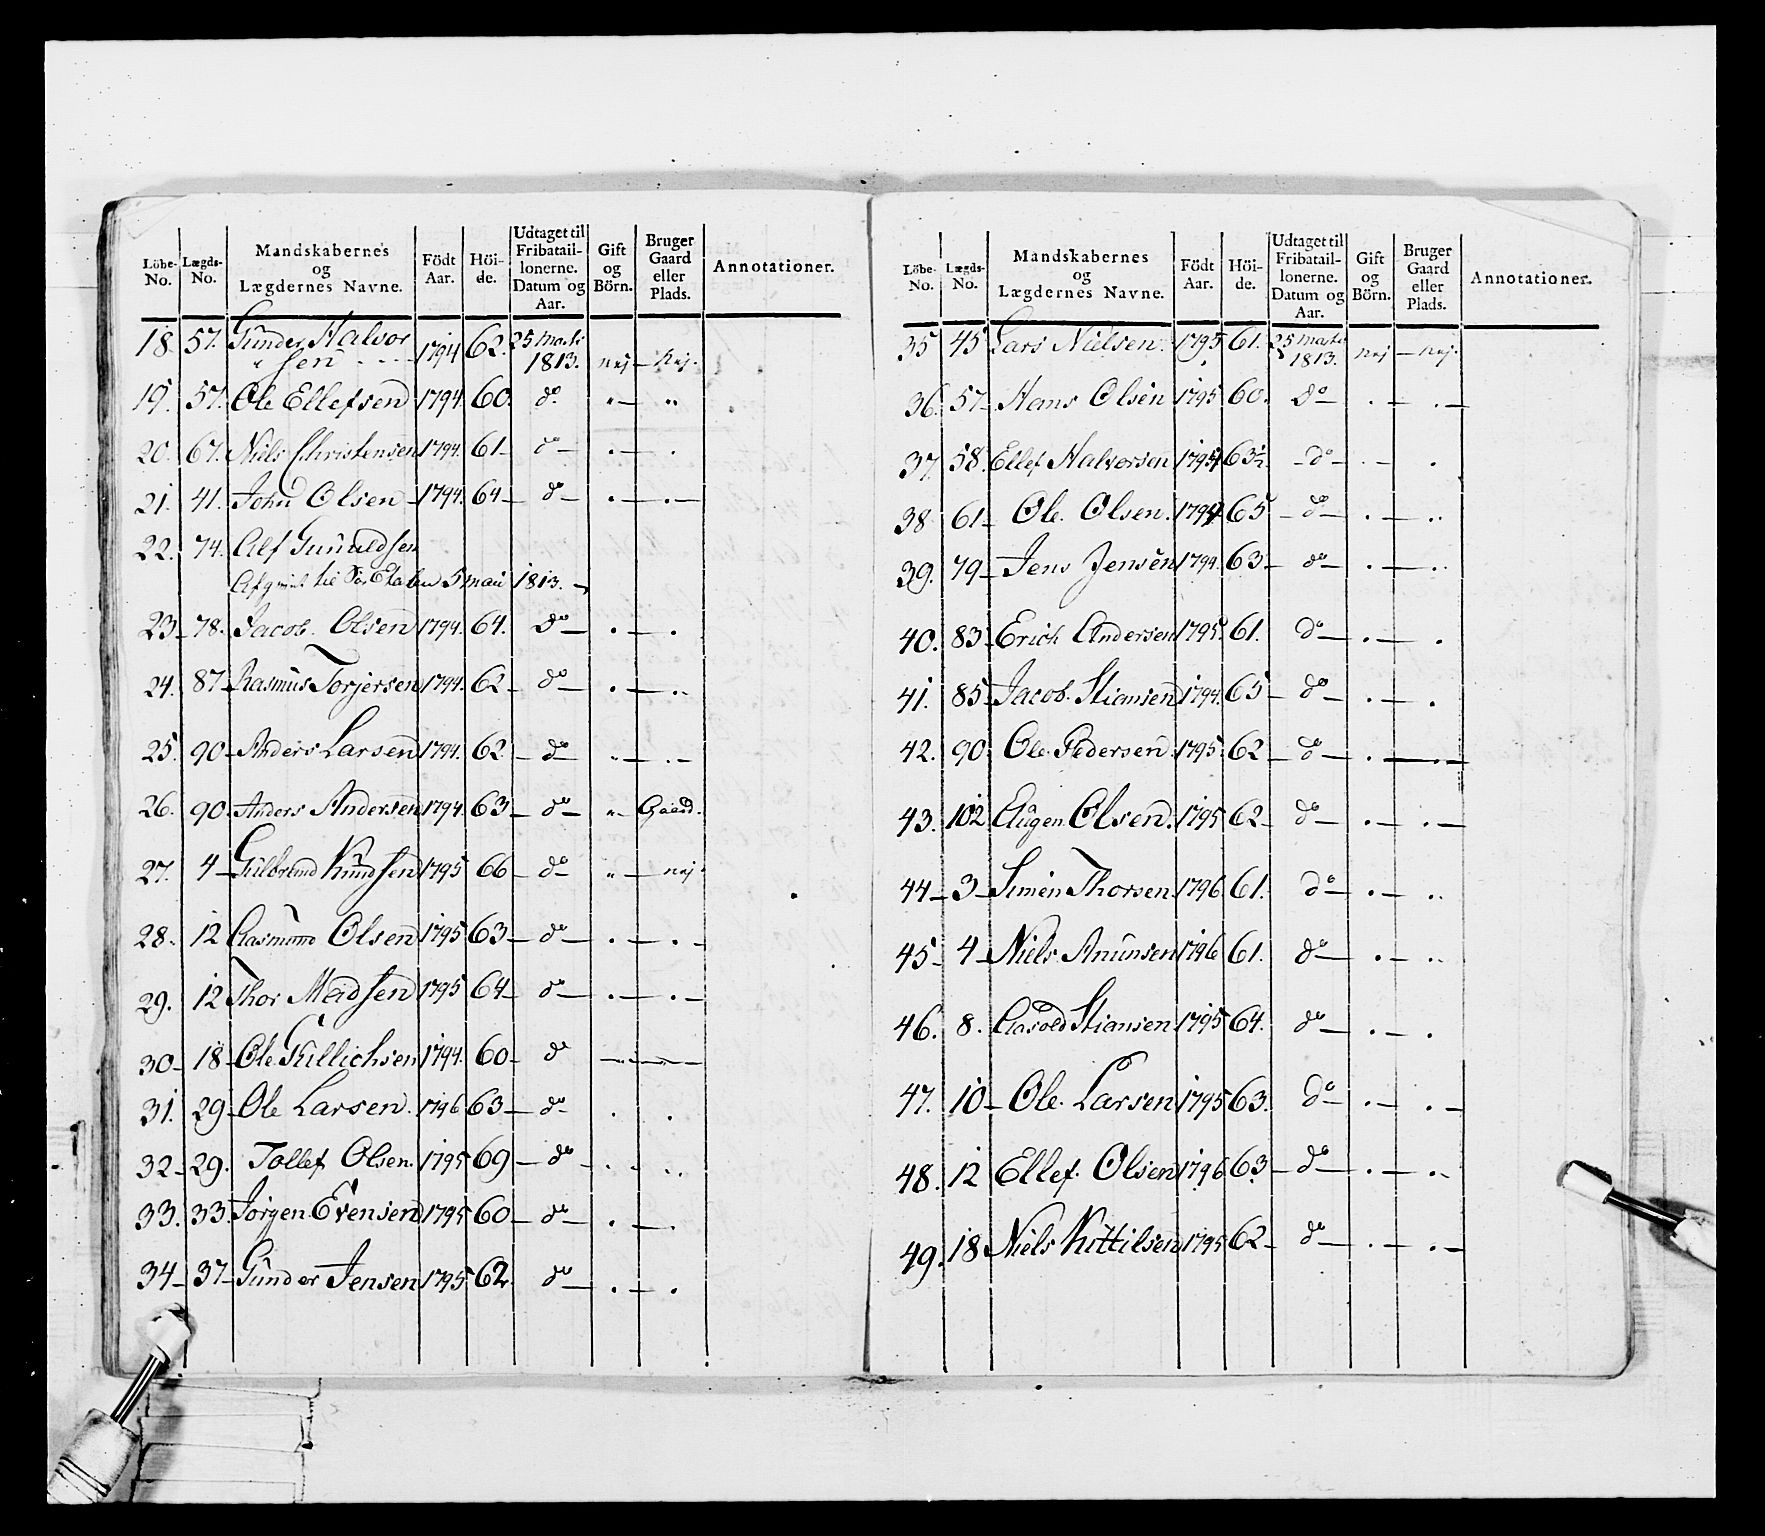 Löbe- No. Lægds- No. Mandskabernes og Lægdernes Navne. Födt Aar. Höi- de. Udtaget til Fribatail- lonerne. Datum og Aar. Gift og Börn. Bruger Gaard eller Plads. Annotationer.
18. 57. Gunder Halvor
" sen - - - 1794 62. 25 Marti 1813. nej — Nej.
19. 57. Ole Ellefsen 1794. 60. do. "— "
20. 67. Niels Christensen 1794. 61— do — . — .
21. 41. John Olsen — 1794. 64— do — . — . —
22. 74. Alf Gunuldsen
til Söe Etaten 5 Maii 1813. —
23— 78. Jacob. Olsen 1794. 64. do — . — .
24. 87— Rasmus Torjersen 1794. 62— do — . — ..
25. 90— Anders Larsen 1794. 62 — do — "— . —
26. 90. Anders Andersen 1794. 63— do — "— Gaard.
27. 4— Gulbrand Knudsen 1795 66 — do — " — nej.
28. 12 Aasmund Olsen 1795 63— do — . — . —
29. 12 Thor Madsen 1795 64— do — . — . —
30— 18— Ole Killichsen 1794. 60— do — " — " —
31. 29— Ole Larsen. 1796 63— do — . .
32— 29. Tollef Olsen. 1795 69 — do — . — ..
33. 33. Jörgen Evensen 1795 60 — do — . — .
34— 37— Gunder Jensen 1795 62. do — . — .
Löbe- No. Lægds- No. Mandskabernes og Lægdernes Navne. Födt Aar. Höi- de. Udtaget til Fribatail- lonerne. Datum og Aar. Gift og Börn. Bruger Gaard eller Plads. Annotationer.
35 45 Lars Nielsen. 1795 61. 25 Marti 1813. nej — nej.
36. 57— Hans Olsen 1795 60. do — . — . —
37. 58. Ellef Halvorsen 1794 63½ — do — . — .
38 61— Ole. Olsen. 1794 65 — do — . — ..
39. 79— Jens Jensen 1794. 63— do — . — ..
40. 83— Erich Andersen 1795. 61. do — . — .
41. 85— Jacob. Stiansen 1794. 65— do — . — .
42. 90. Ole. Pedersen. 1795. 62 — do — . — . —
43. 102 Augen Olsen. 1795 62— do — . — . —
44— 3— Simen Thorsen. 1796 61. do — . — ..
45— 4— Niels Anunsen 1796 61. do — . — ..
46. 8. Aasold Stiansen 1795 64. do — . — .
47. 10— Ole. Larsen 1795 63. do — . — . —
48. 12 Ellef. Olsen 1796 63— do — . — ..
49. 18 Niels Kittilsen 1795 62— do — . — . —